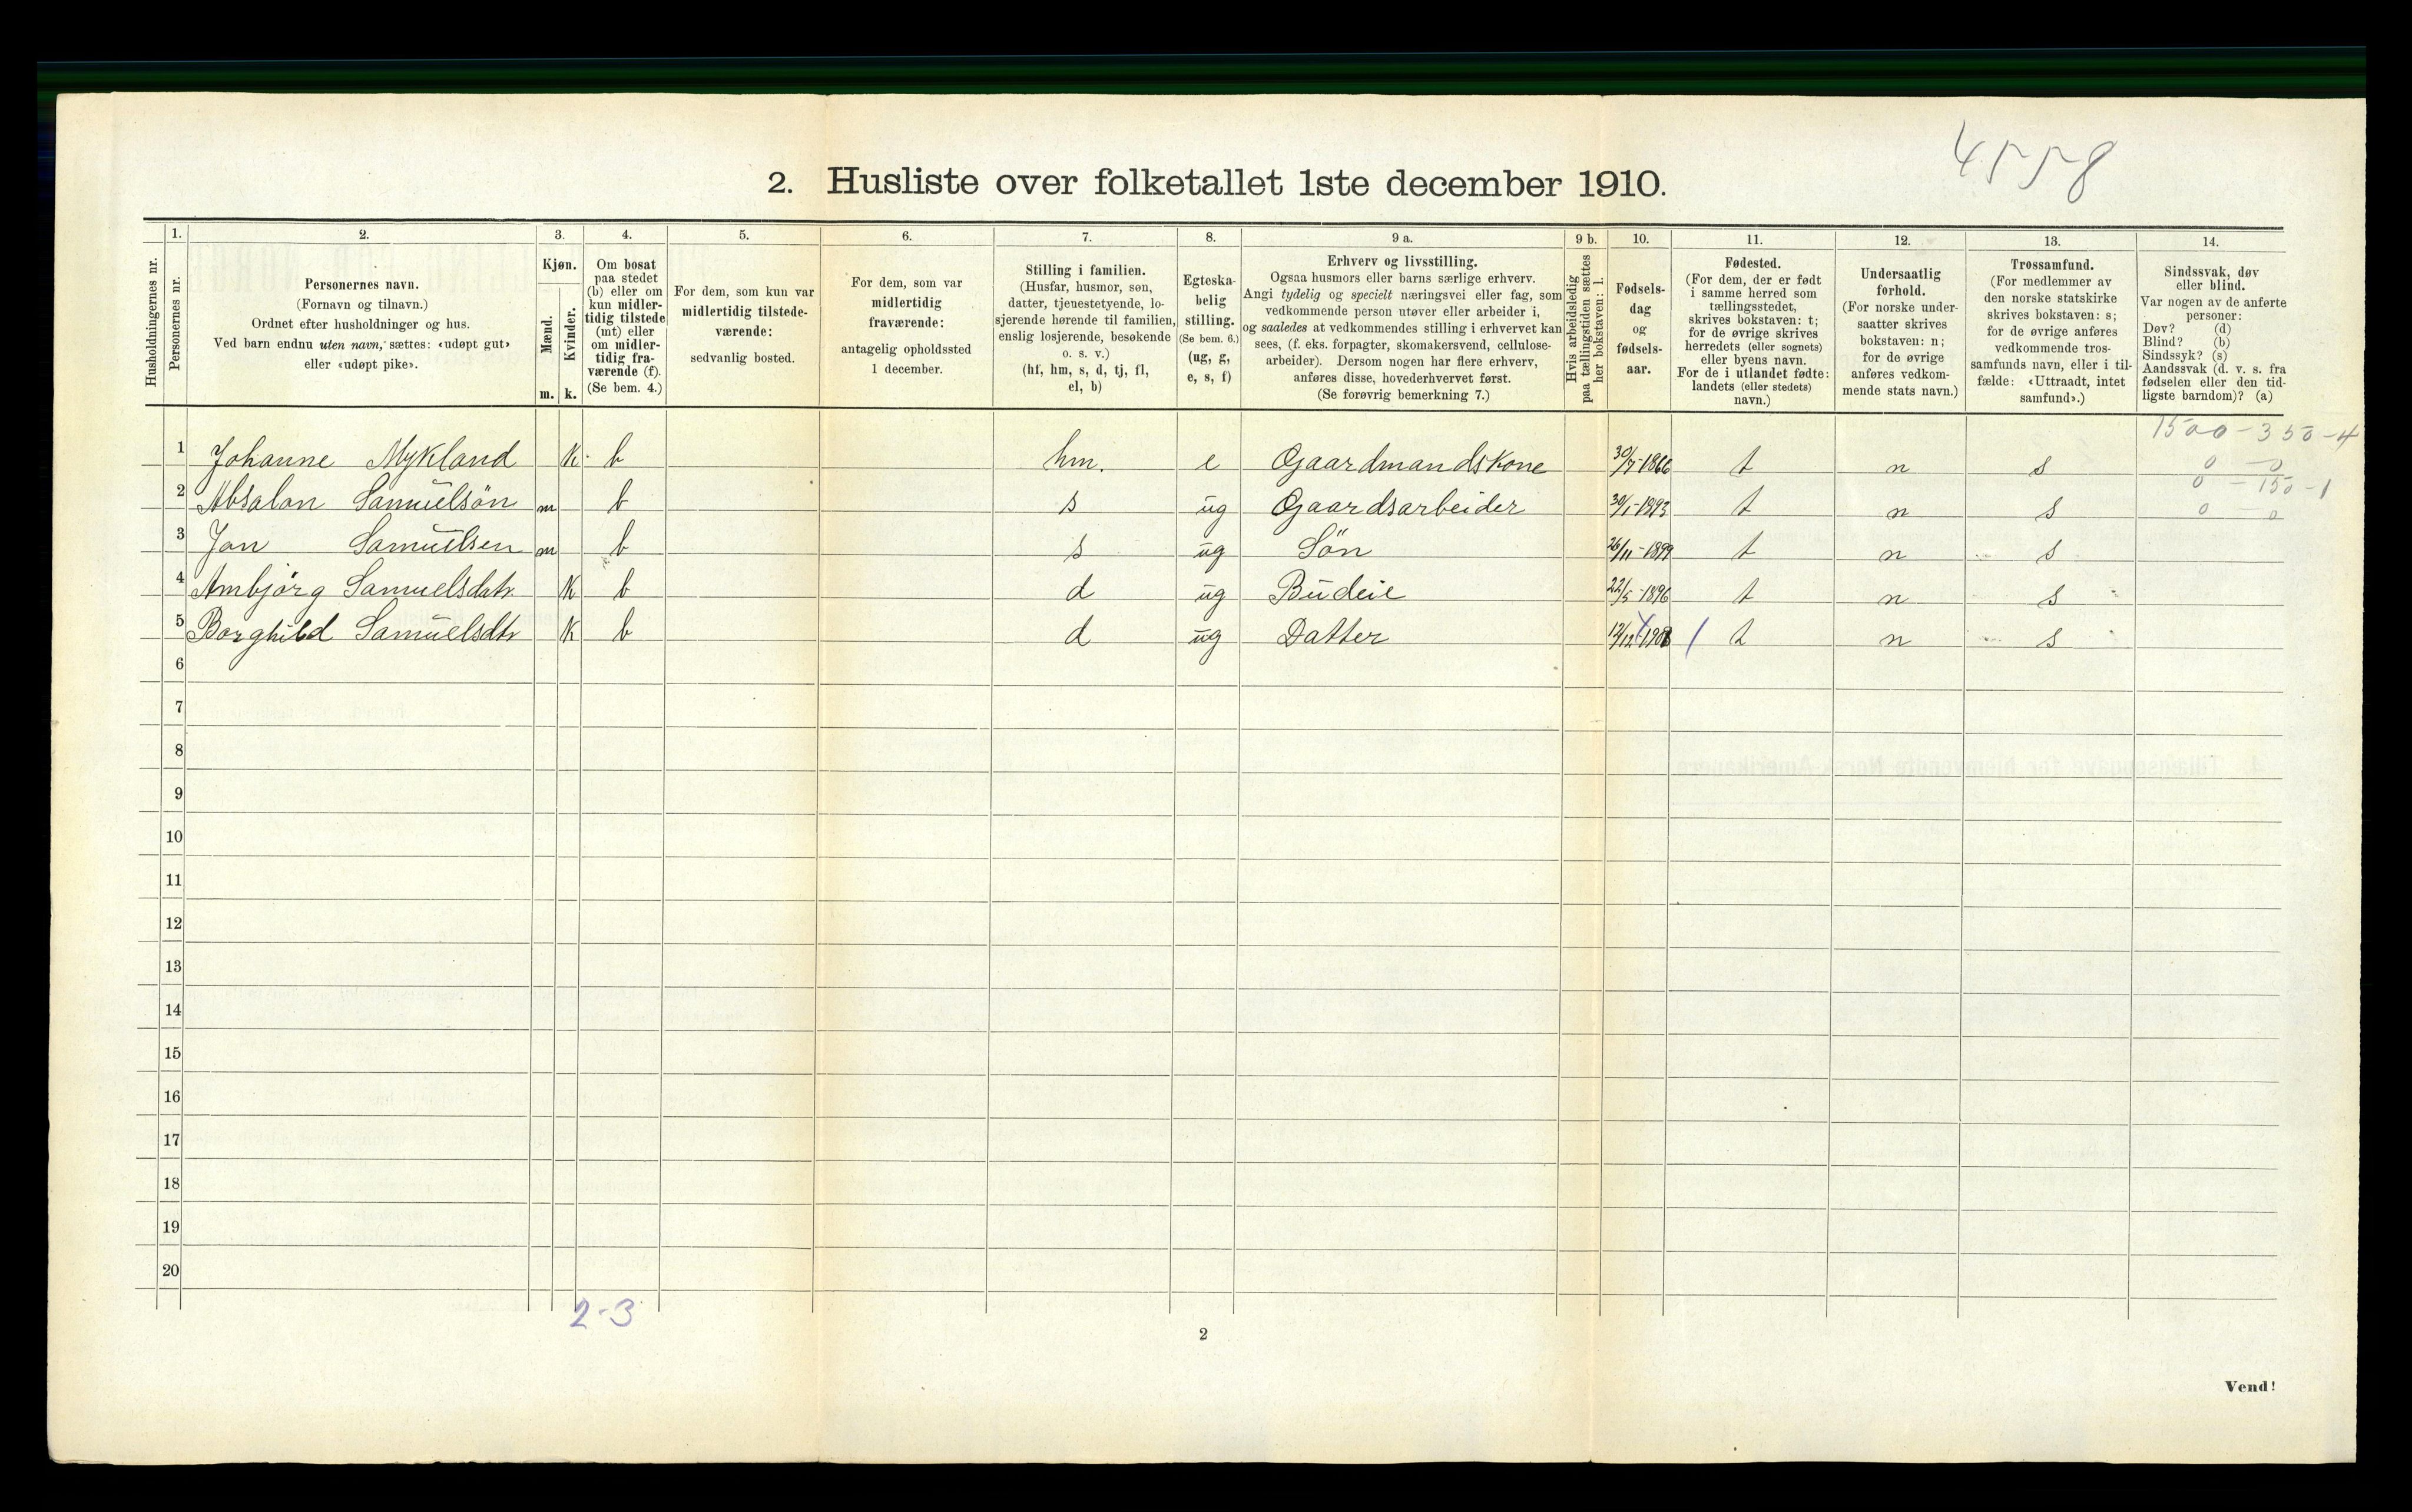 4558
2. Husliste over folketallet 1ste december 1910.
1. 2. 3. 4. 5. 6. 7. 8. 9 a. 9 b. 10. 11. 12. 13. 14.
Husholdningernes nr.
Personernes nr.
Personernes navn.
(Fornavn og tilnavn.)
Ordnet efter husholdninger og hus.
Ved barn endnu uten navn, sættes: «udøpt gut»
eller «udøpt pike».
Kjøn.
Mænd.
Kvinder.
m. k.
Om bosat
paa stedet
(b) eller om
kun midler-
tidig tilstede
(mt) eller
om midler-
tidig fra-
værende (f).
(Se bem. 4.)
For dem, som kun var
midlertidig tilstede-
værende:
sedvanlig bosted.
For dem, som var
midlertidig
fraværende:
antagelig opholdssted
1 december.
Stilling i familien.
(Husfar, husmor, søn,
datter, tjenestetyende, lo-
sjerende hørende til familien,
enslig losjerende, besøkende
o. s. v.)
(hf, hm, s, d, tj, fl,
el, b)
Egteska-
belig
stilling.
(Se bem. 6.)
(ug, g,
e, s, f)
Erhverv og livsstilling.
Ogsaa husmors eller barns særlige erhverv.
Angi tydelig og specielt næringsvei eller fag, som
vedkommende person utøver eller arbeider i,
og saaledes at vedkommendes stilling i erhvervet kan
sees, (f. eks. forpagter, skomakersvend, cellulose-
arbeider). Dersom nogen har flere erhverv,
anføres disse, hovederhvervet først.
(Se forøvrig bemerkning 7.)
Hvis arbeidsledig
paa tællingstiden sættes
her bokstaven: l.
Fødsels-
dag
og
fødsels-
aar.
Fødested.
(For dem, der er født
i samme herred som
tællingsstedet,
skrives bokstaven: t;
for de øvrige skrives
herredets (eller sognets)
eller byens navn.
For de i utlandet fødte:
landets (eller stedets)
navn.)
Undersaatlig
forhold.
(For norske under-
saatter skrives
bokstaven: n;
for de øvrige
anføres vedkom-
mende stats navn.)
Trossamfund.
(For medlemmer av
den norske statskirke
skrives bokstaven: s;
for de øvrige anføres
vedkommende tros-
samfunds navn, eller i til-
fælde: «Uttraadt, intet
samfund».)
Sindssvak, døv
eller blind.
Var nogen av de anførte
personer:
Døv? (d)
Blind? (b)
Sindssyk? (s)
Aandssvak (d. v. s. fra
fødselen eller den tid-
ligste barndom)? (a)
1500 - 350 - 4
1 Johanne Mykland K b hm. e Gaardmandskone 30/7-1866 t n s 0 - 0
0 - 150 - 1
2 Absalon Samuelsön m b s ug Gaardsarbeider 30/1-1893 t n s 0 - 0
3 Jon Samuelsen m b s ug Sön 26/11-1899 t n s
4 Ambjörg Samuelsdatr. K b d ug Budeie 22/5-1896 t n s
5 Borghild Samuelsdtr K b d ug Datter 12/12 t n s
6
7
8
9
10
11
12
13
14
15
16
17
18
19
20
2-3
2
Vend!